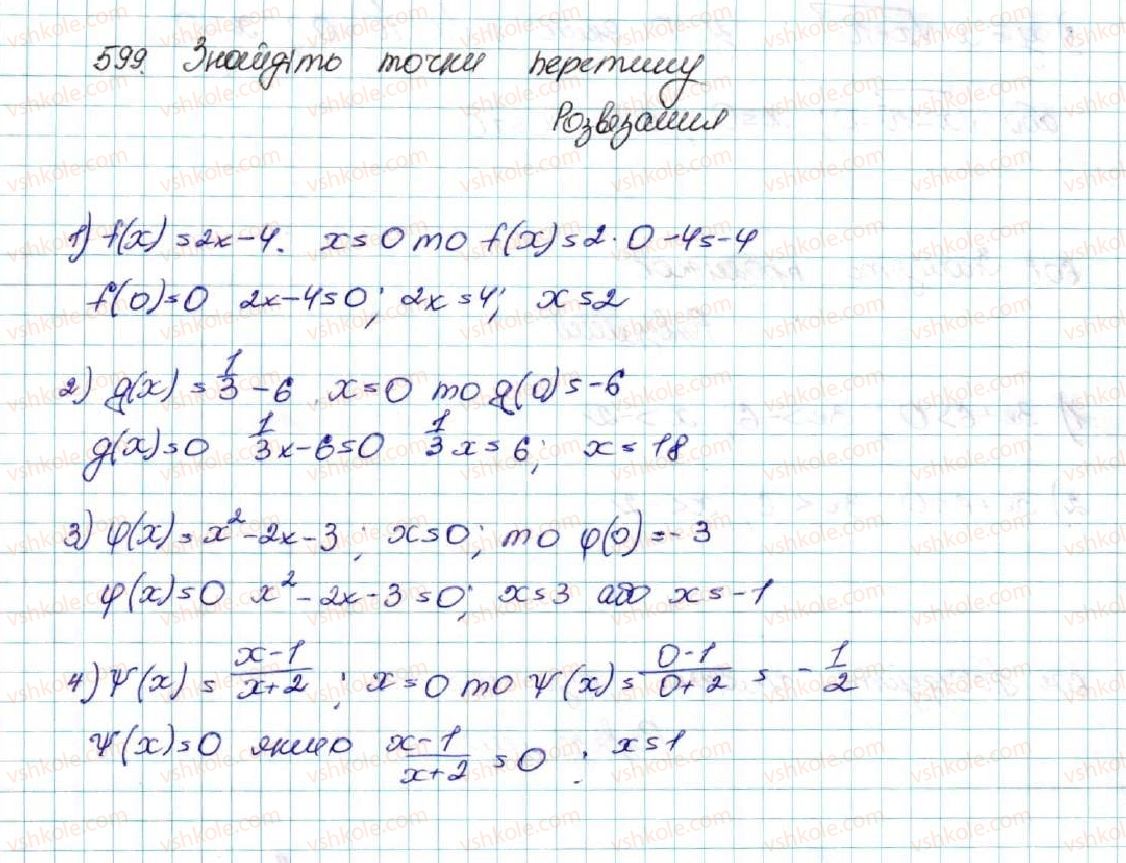 599. Знайдіть точки перетину
Розвезання
1) f(x) = 2x-4. x = 0 то f(x) = 2·0-4=-4
f(0)=0 2x-4=0; 2x=4; x=2
2) g(x) = 1/3 - 6 x=0 то g(0)=-6
g(x)=0 1/3x-6=0 1/3x=6; x=18
3) φ(x)=x²-2x-3; x=0; то φ(0)=-3
φ(x)=0 x²-2x-3=0; x=3 або x=-1
4) Ψ(x)= x-1/x+2; x=0 то Ψ(x)= 0-1/0+2 = -1/2
Ψ(x)=0 якщо x-1/x+2 =0; x=1